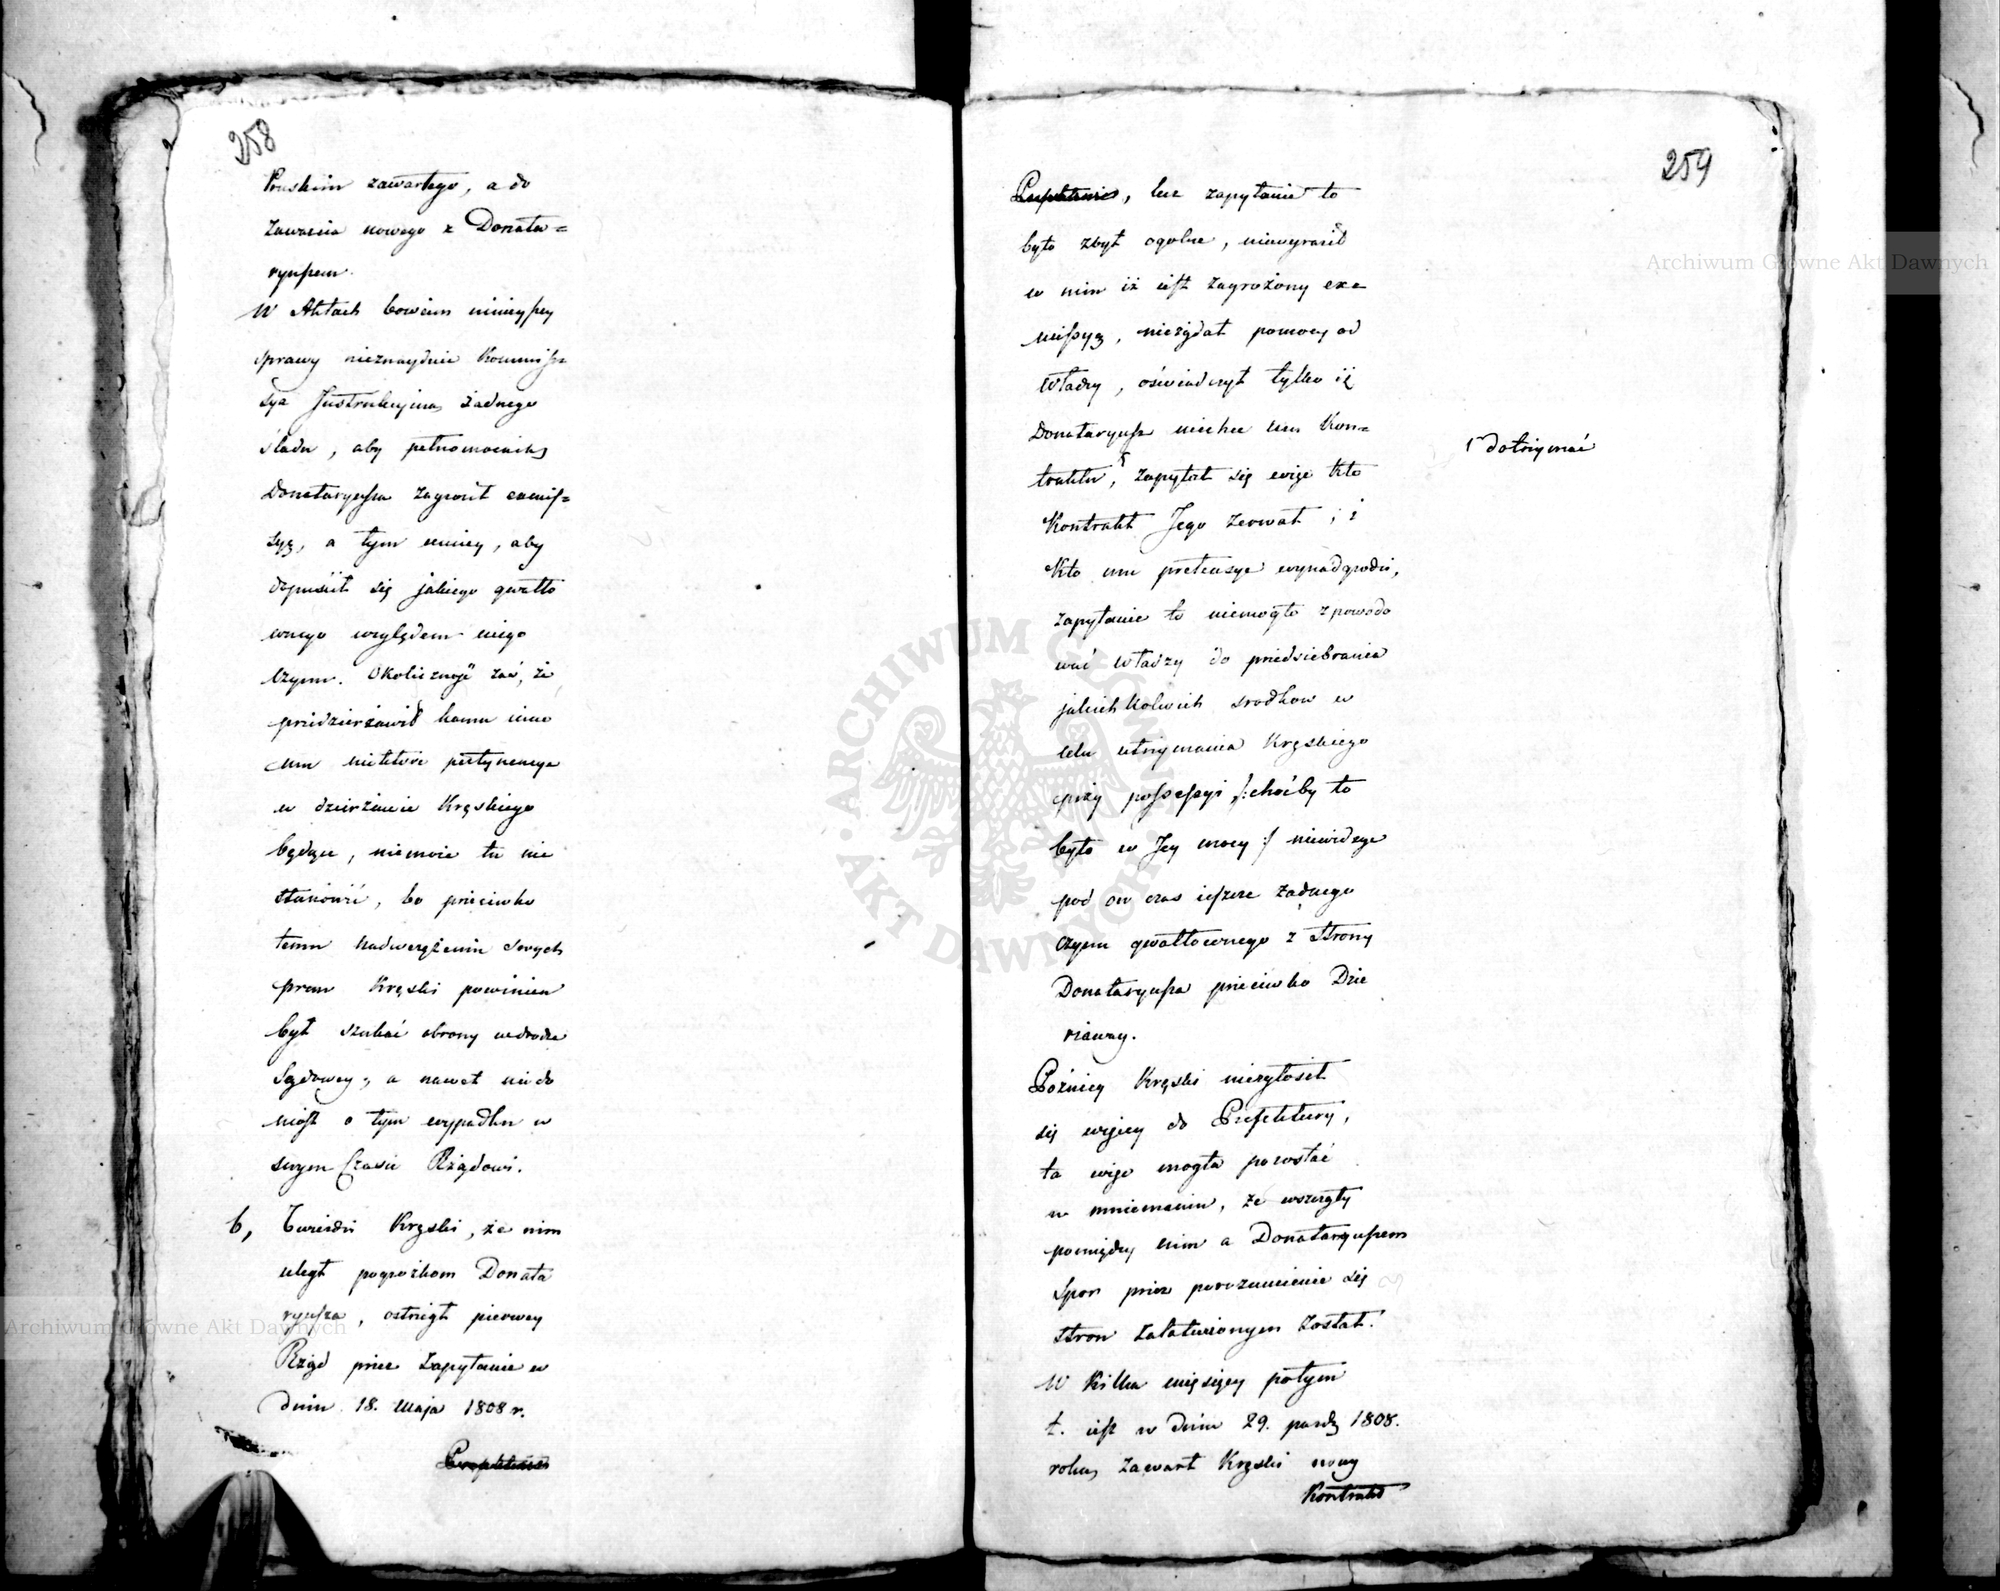 258
Pruskim zawartego, a do
zawarcia nowego z Donata=
ryuszem.
W Aktach bowiem ninieyszey
sprawy nieznayduie Kommis=
sya Instrukcyina żadnego
śladu, aby pełnomocnik
Donataryusza zagroził exmis=
syą, a tym mniey, aby
dopuścił się jakiego gwałto
wnego względem niego
czynu. Okoliczność zaś, że
przedzierżawił komu inne
mu niektóre pertynencye
w dzierżawie Kręskiego
będące, niemoże tu nic
stanowić, bo przeciwko
temu nadwerężeniu swych
praw Kręski powinien
był szukać obrony w drodze
Sądowey, a nawet nie do
niósł o tym wypadku w
swym Czasie Rządowi.
b, Twierdzi Kręski, że nim
uległ pogrożkom Donata
ryusza, ostrzegł pierwey
Rząd przez Zapytanie w
dniu 18. Maja 1808 r.
259
lecz zapytanie to
było zbyt ogolne, niewyraził
w nim iż iest zagrożony exe=
missyą, nieżądał pomocy od
Władzy, oświadczył tylko iż
Donataryusz niechce mu Kon=
traktu, zapytał się więc kto
Kontrakt Jego zerwał, i
kto mu pretensye wynadgrodzi,
zapytanie to niemogło spowodo
wać Władzy do przedsiebrania
jakichkolwiek srodkow w
celu utrzymania Kręskiego
przy possessyi /: choćby to
było w Jey mocy :/ niewidząc
pod ow czas ieszcze żadnego
czynu gwałtownego z Strony
Donataryusza przeciwko Dzie
rżawcy.
Pożniey Kręski niezgłosił
się więcey do Prefektury,
ta więc mogła pozostać
w mniemaniu, że wszczęty
pomiędzy nim a Donataryuszem
Spor przez porozumienie się
stron załatwionym został.
W kilka mięsięcy potym
t. iest w dniu 29. paźdz 1808.
roku, zawarł Kręski nowy
Kontrakt
dotrzymać
Archiwum Główne Akt Dawnych
Archiwum Główne Akt Dawnych
ARCHIWUM GŁÓWNE · AKT DAWNYCH ·